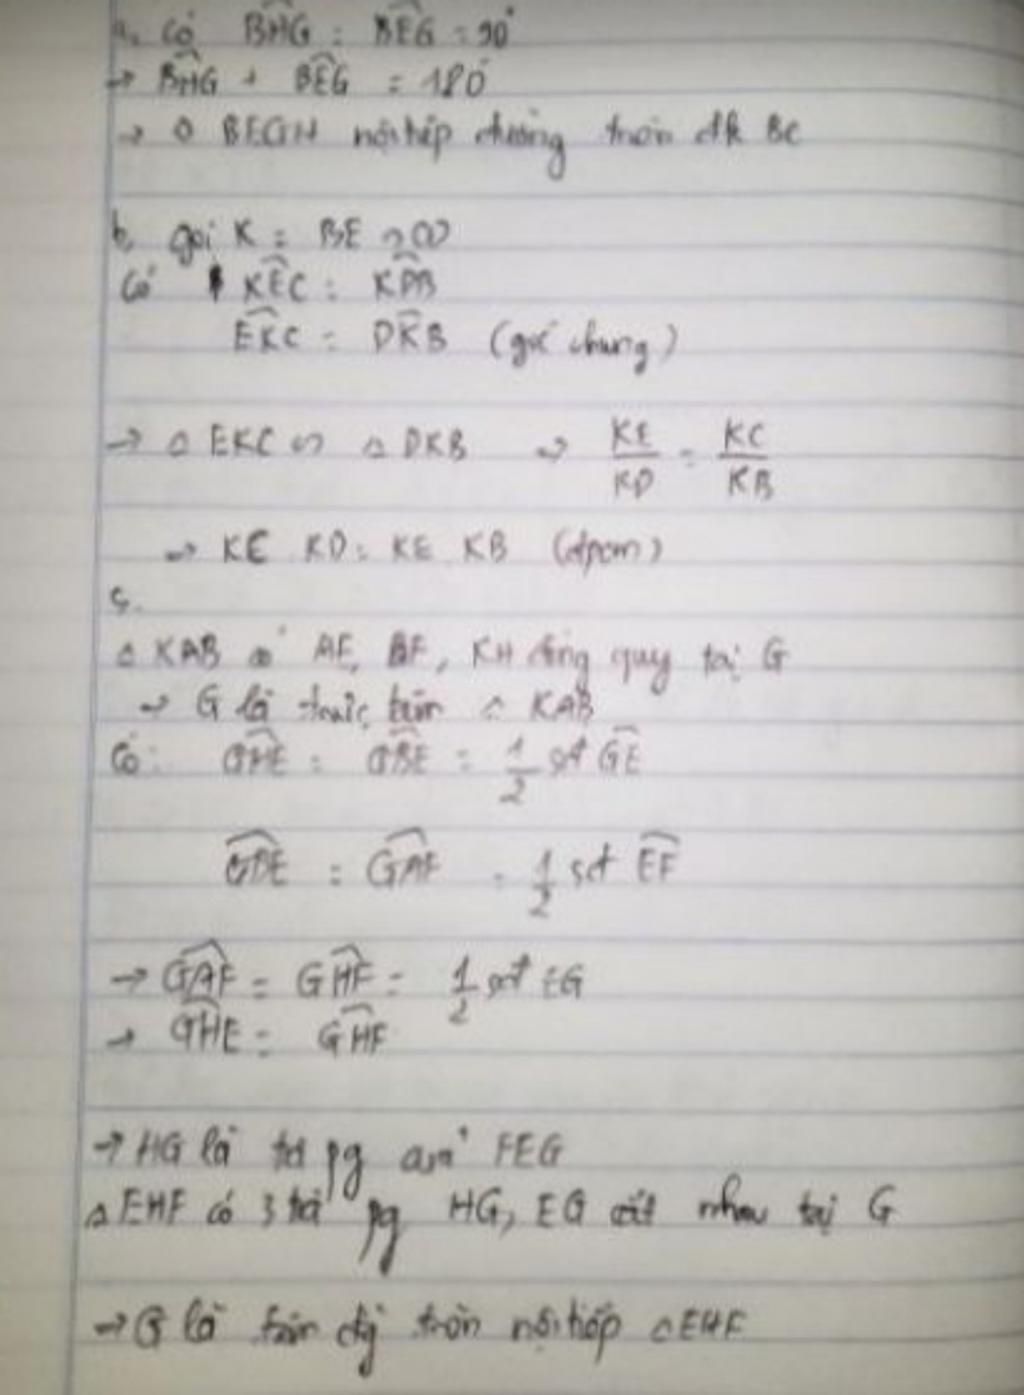 a. Có BHG = BEG = 90°
→ BHG + BEG = 180°
→ ◊ BEGH nội tiếp đường tròn đk BC
b, gọi K = BE ∩
Có KEC = KDB
EKC = DKB (góc chung)
→ △ EKC ∽ △ DKB → KE/KD = KC/KB
→ KE KD = KE. KB (đpcm)
c.
△ KAB có AE, BF, KH đồng quy tại G
→ G là trực tâm △ KAB
Có: GHE = GBE = 1/2 sđ GE
GBE = GAF = 1/2 sđ EF
→ GAF = GHF = 1/2 sđ EG
→ GHE = GHF
→ HG là tia pg của FEG
△ EHF có 3 tia pg HG, EG cắt nhau tại G
→ G là tâm đg tròn nội tiếp △EHF